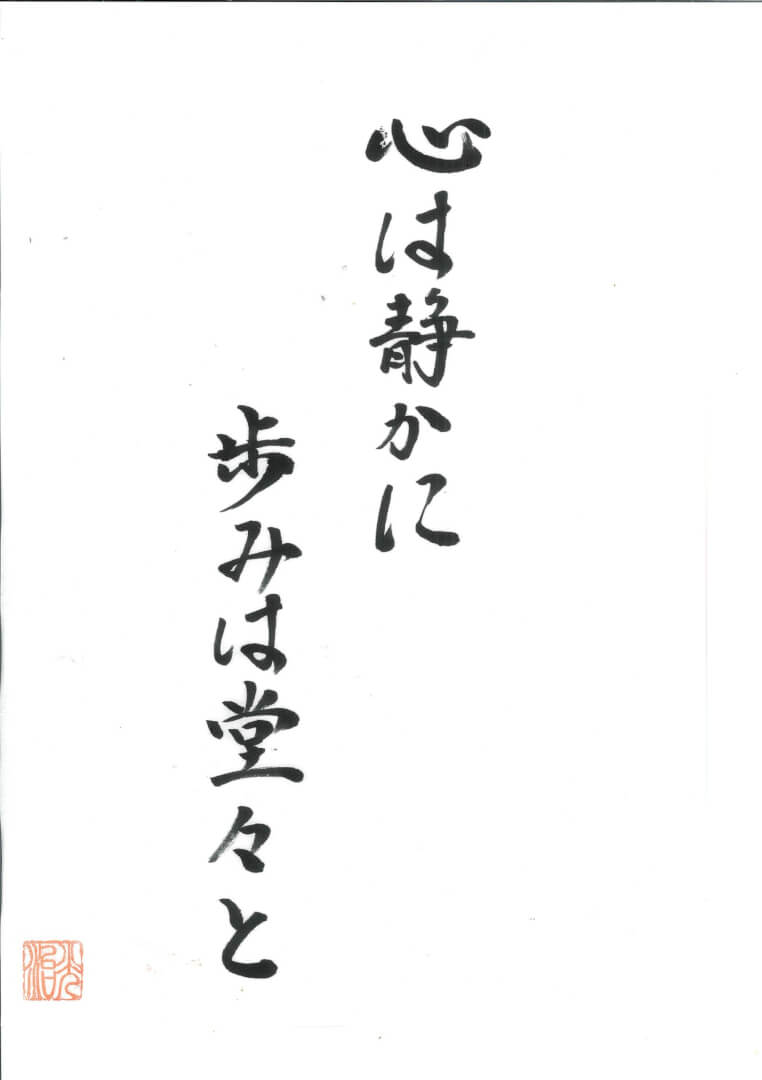 心は静かに
歩みは堂々と